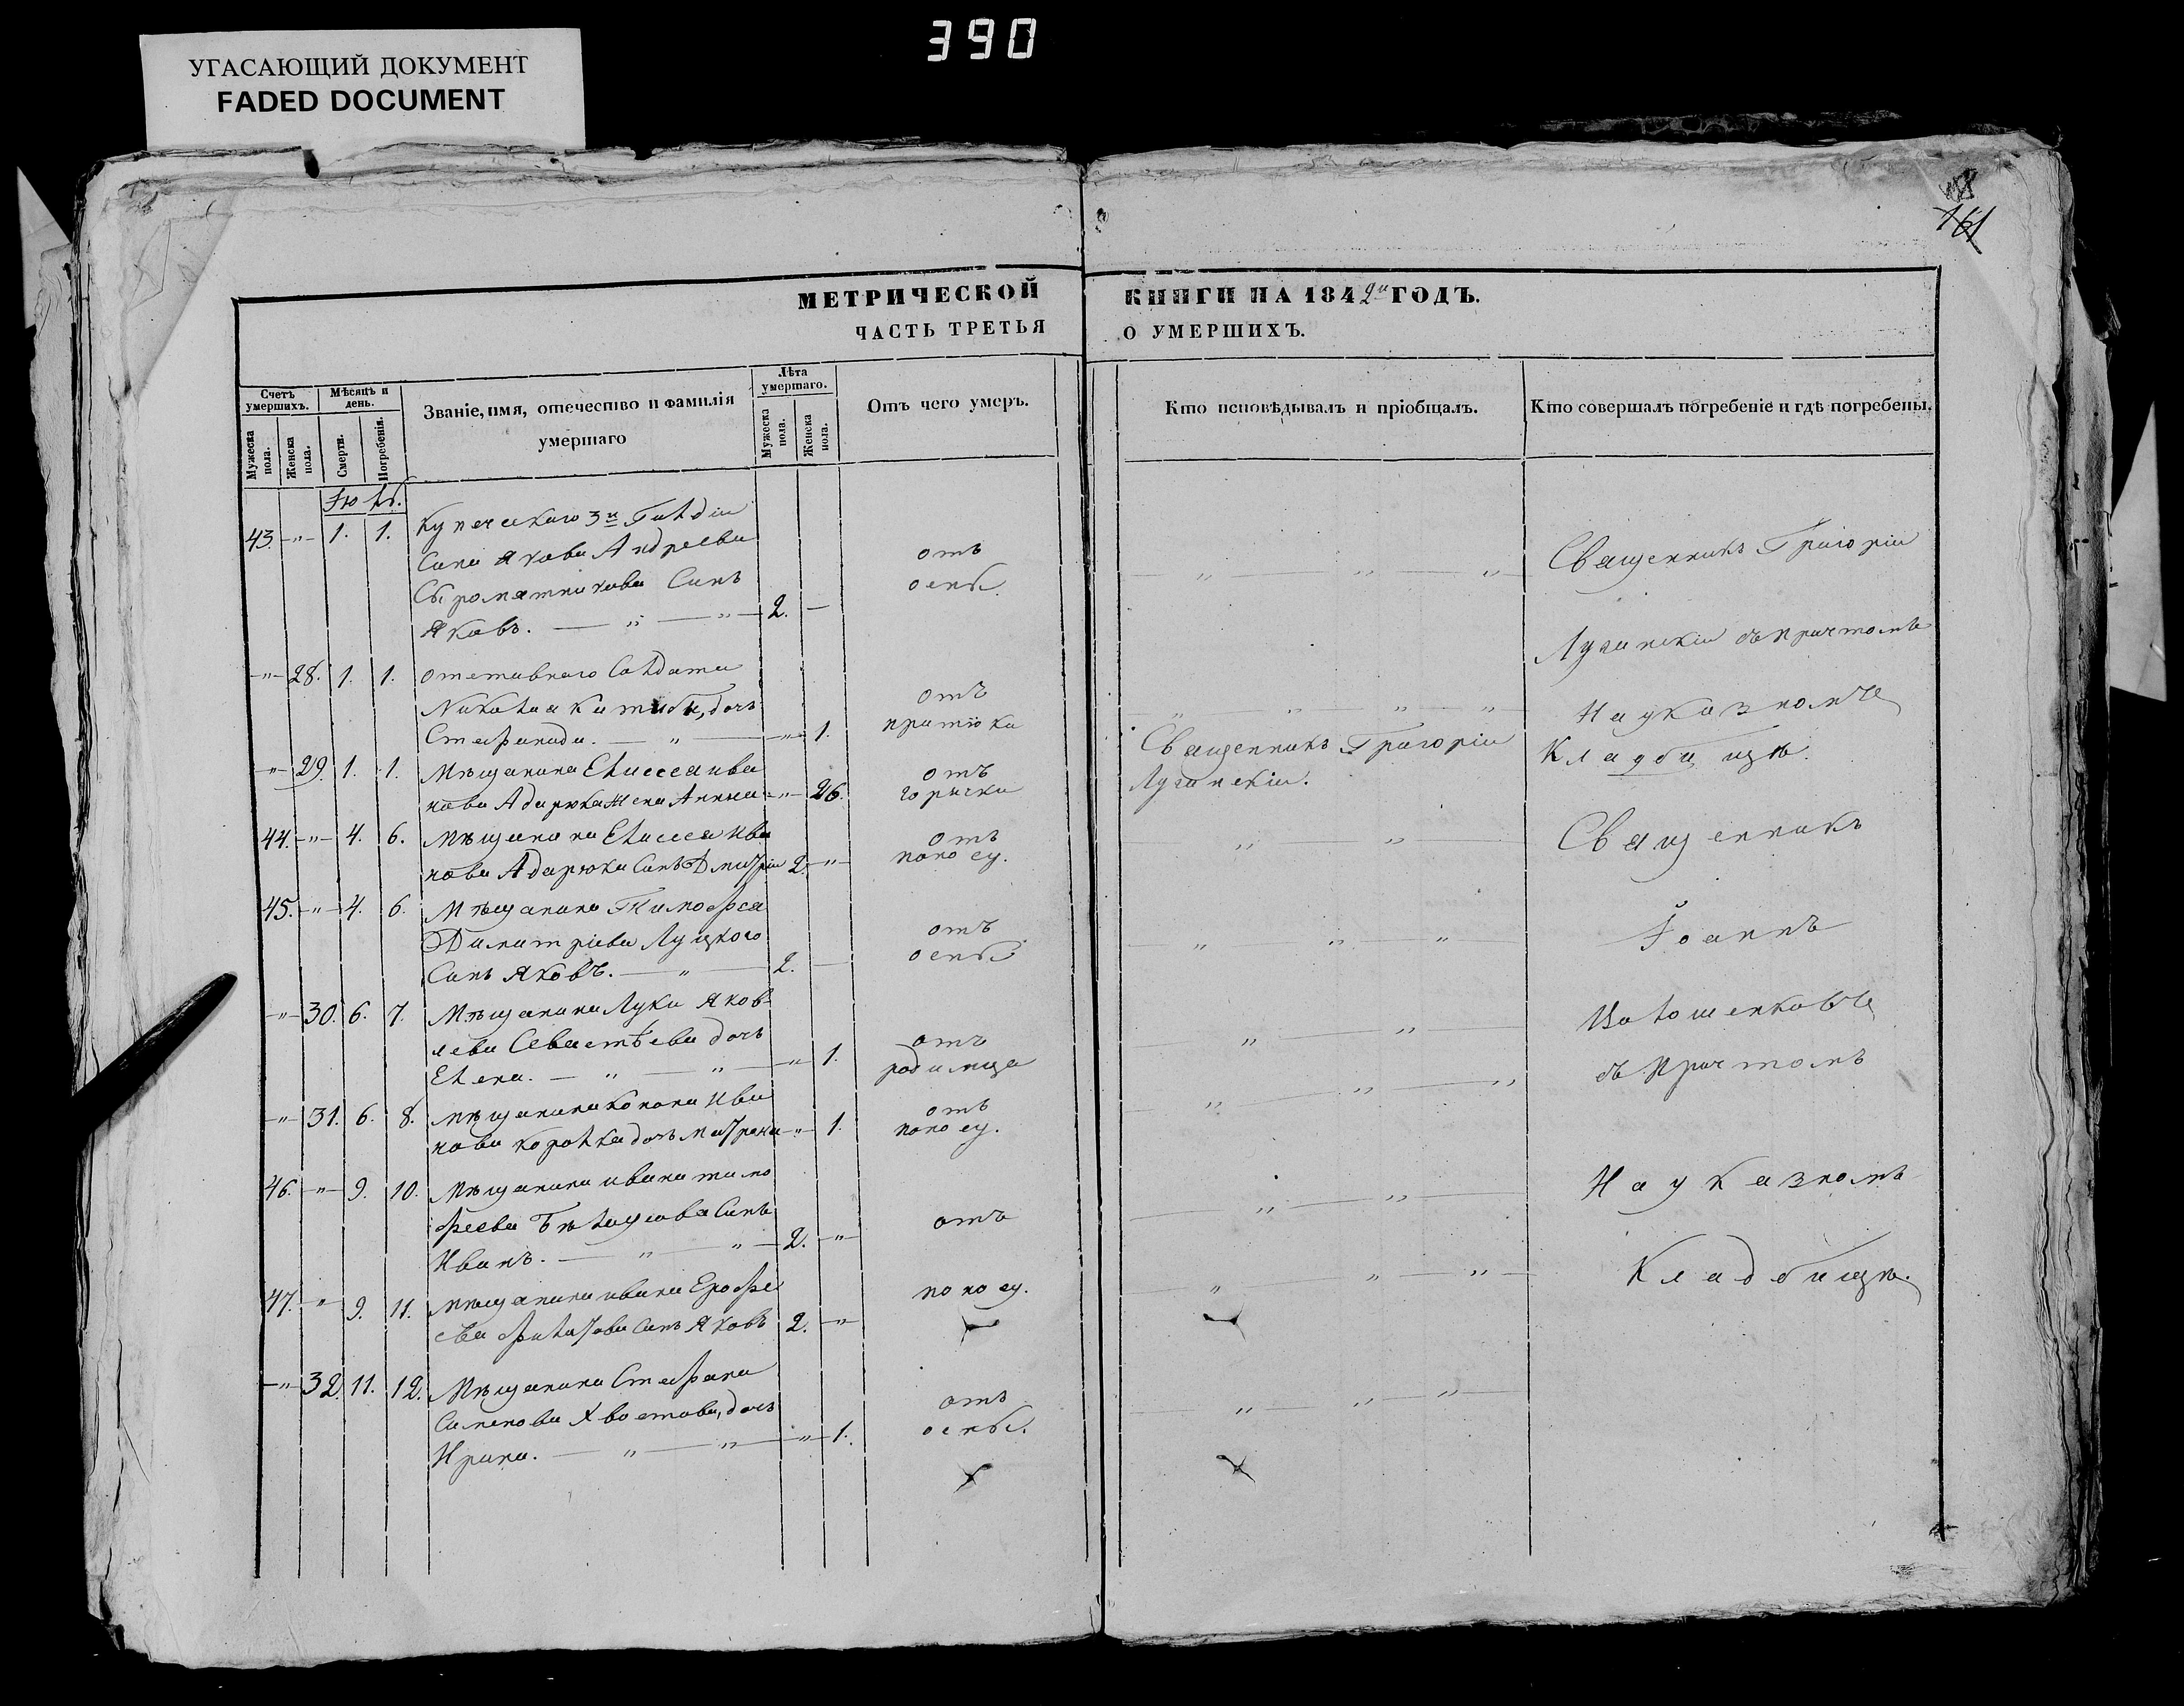 390
УГАСАЮЩИЙ ДОКУМЕНТ
FADED DOCUMENT
161
МЕТРИЧЕСКОЙ КНИГИ НА 1842й ГОДЪ.
ЧАСТЬ ТРЕТЬЯ О УМЕРШИХЪ.
Счетъ умершихъ.
Мужеска пола.
Женска пола.
Мѣсяцъ и день.
Смерти.
Погребенія.
Званіе, имя, отечество и фамилія умершаго
Лѣта умершаго.
Мужеска пола.
Женска пола.
Отъ чего умеръ.
Кто исповѣдывалъ и пріобщалъ.
Кто совершалъ погребеніе и гдѣ погребены.
43. -"- 1. 1. Купеческаго 3й Гилдіи
Сына Якова Андреева
Сыромятникова Сынъ
Яковъ. — " — " — 2. —
отъ
оспы.
-"- 28. 1. 1. отставнаго Солдата
Николая дочь
Стефанида. — " — -"- 1.
отъ
-"- 29. 1. 1. Мѣщанина Елиссея Ива
нова Адарюка жена Анна -"- 26.
отъ
горячки
44. -"- 4. 6. Мѣщанина Елиссея Ива
нова Адарюка Сынъ Дмитрій 2. -"-
отъ
поносу.
45. -"- 4. 6. Мѣщанина Тимофея
Димитріева Луцкого
Сынъ Яковъ. — " — 2. —
отъ
оспы
-"- 30. 6. 7. Мѣщанина Луки Яков
лева Севастѣева дочь
Елена. — " — " — -"- 1.
отъ
родимца
-"- 31. 6. 8. Мѣщанина Конона Ива
нова Королка дочь Матрона -"- 1.
отъ
поносу.
46. -"- 9. 10. Мѣщанина Ивана Тимо
феева Сынъ
Иванъ. — " — " — 2. -"-
отъ
47. -"- 9. 11. Мѣщанина Ивана Ерофе
ева Филатова Сынъ Яковъ 2. -"-
поносу.
-"- 32. 11. 12. Мѣщанина Стефана
Симонова Хвостова, дочь
Ирина. — " — " — -"- 1.
отъ
оспы.
Священникъ Григорій
Лучинскій.
Священникъ Григорій
Лучинскій съ причтомъ
На указномъ
Кладбищѣ.
Священникъ
Іоаннъ
Волошенковъ
съ Причтомъ
На указномъ
Кладбищѣ.